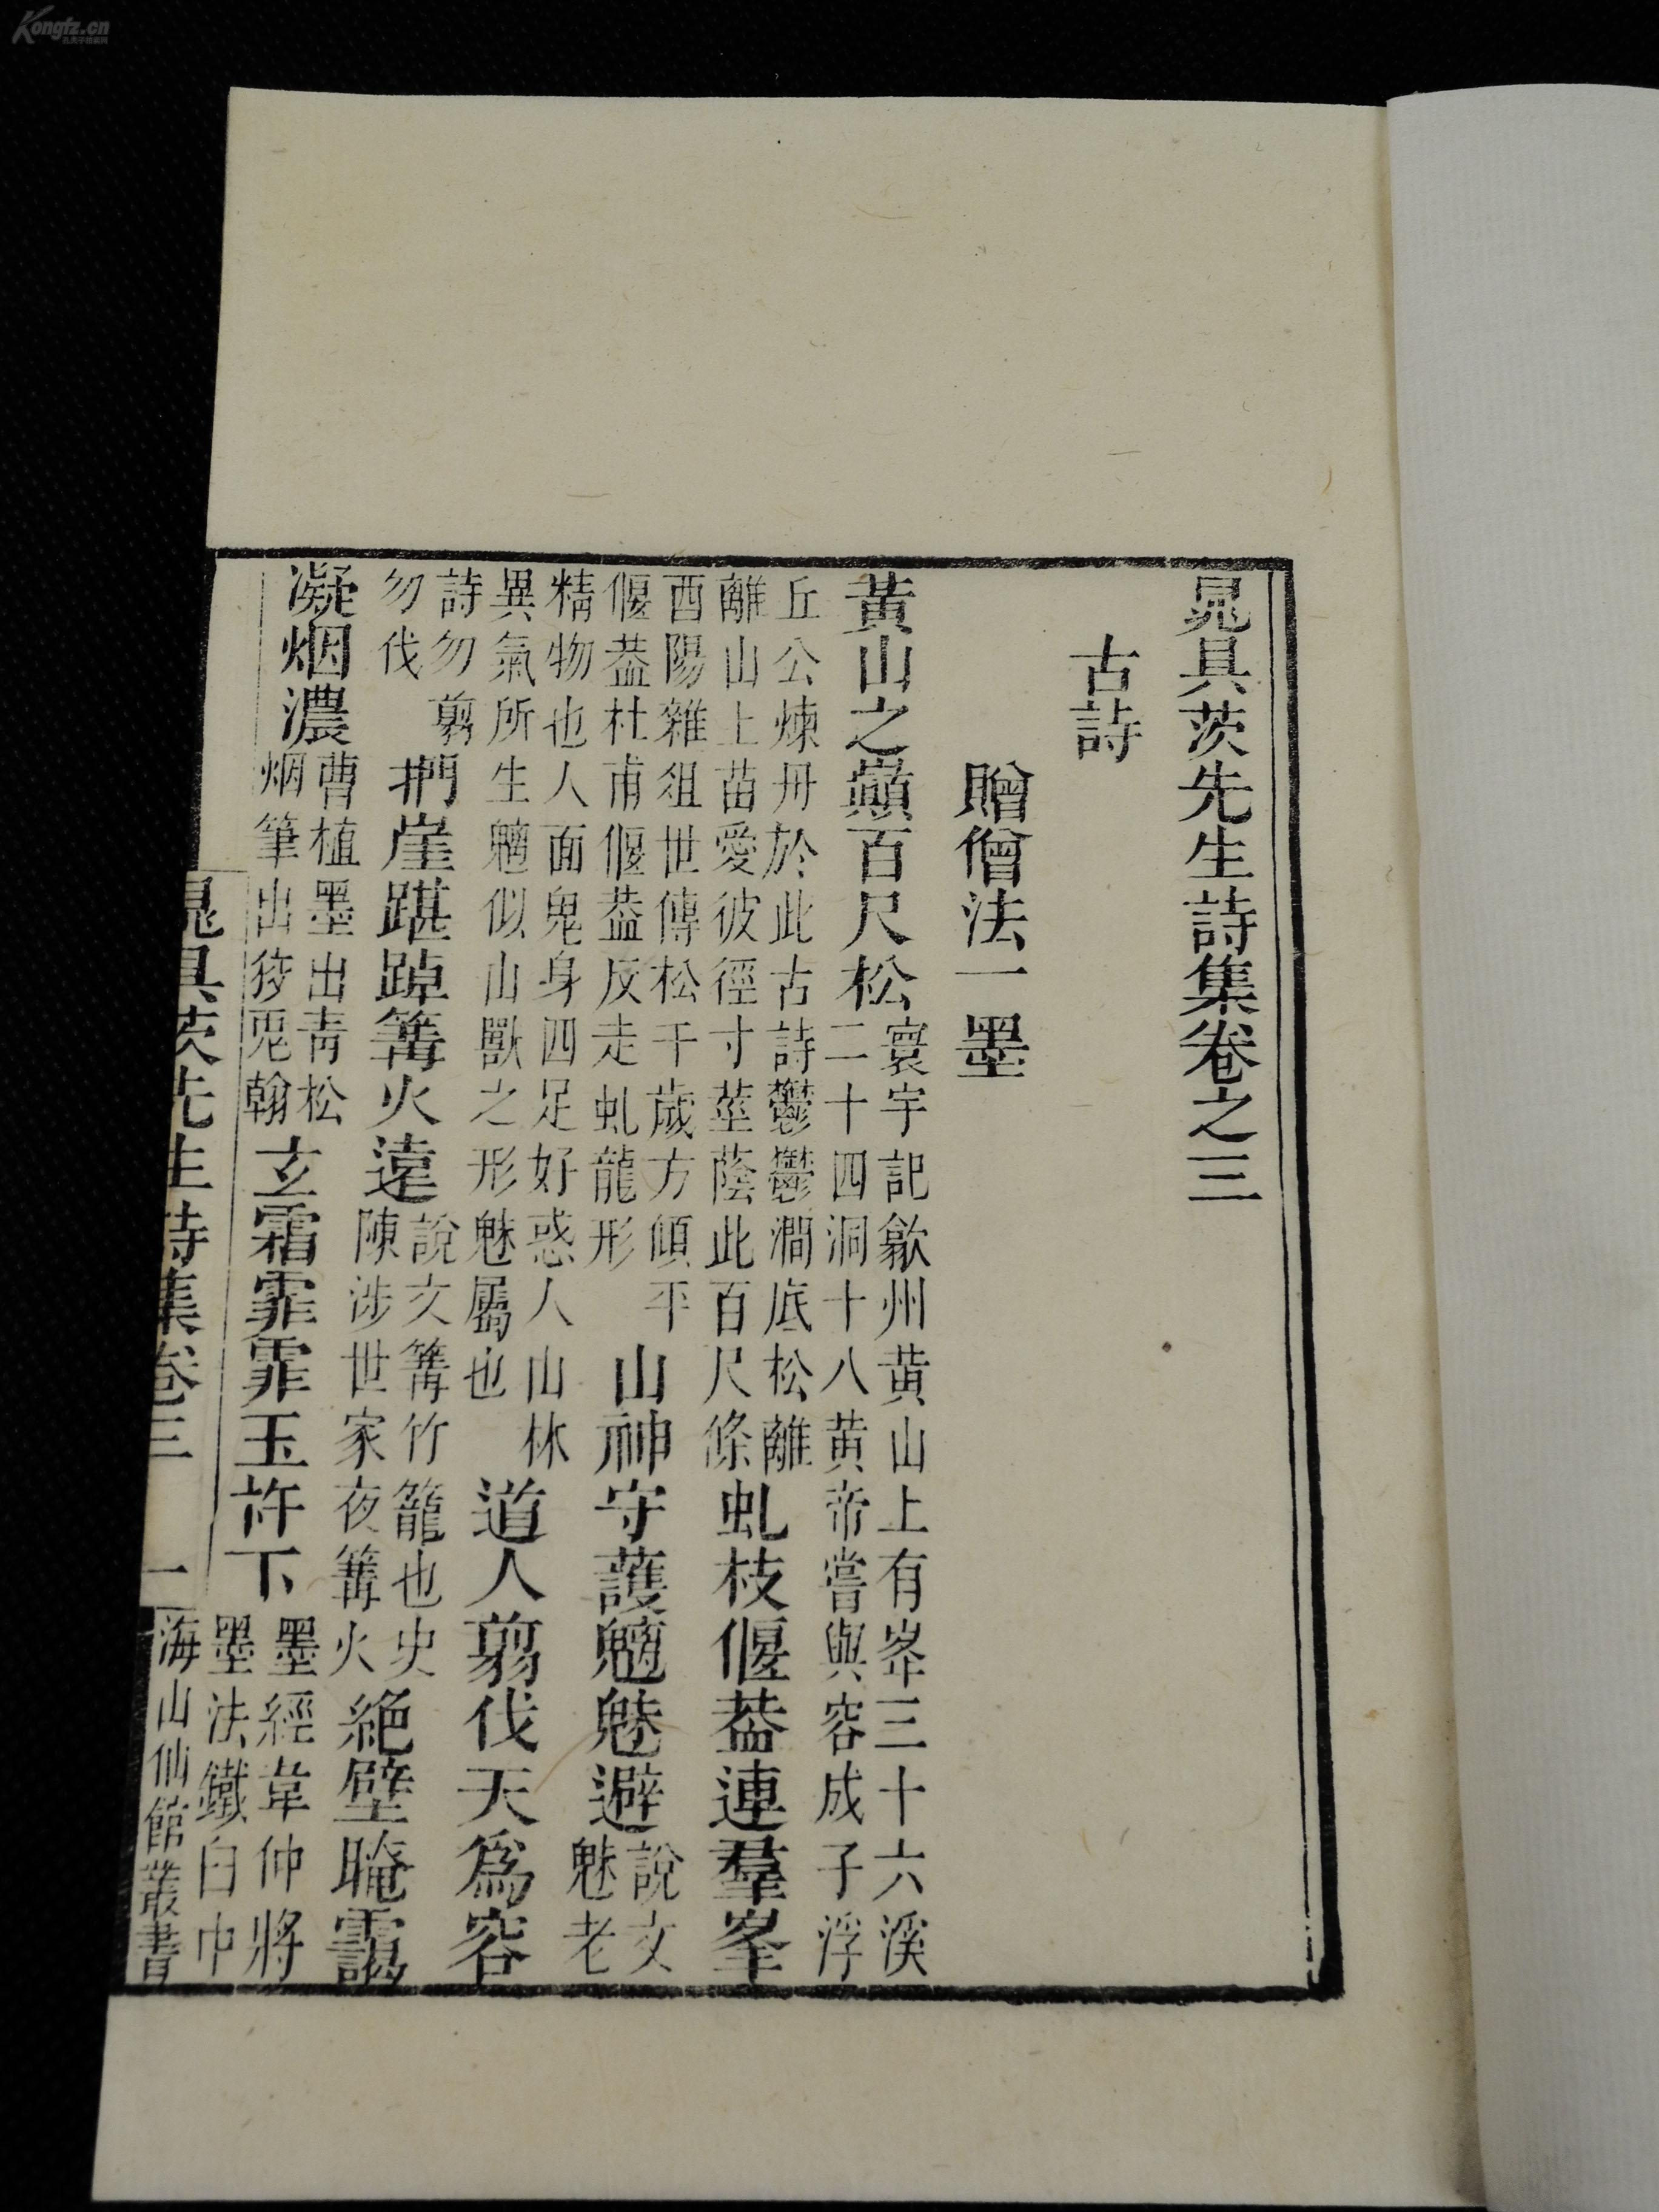 晁具茨先生詩集卷之三
古詩
贈僧法一墨
黃山之巔百尺松寰宇記歙州黄山上有峯三十六溪二十四洞十八黄帝嘗與容成子浮
丘公煉丹於此古詩鬱鬱澗底松離離山上苗愛彼徑寸莖蔭此百尺條虬枝偃葢連羣峯
酉陽雜俎世傳松千歲方傾平偃葢杜甫偃葢反走虬龍形山神守護魑魅避說文魅老
精物也人面鬼身四足好惑人山林異氣所生魑似山獸之形魅屬也道人翦伐天爲容
詩勿翦勿伐捫崖踸踔篝火遠說文篝竹籠也史陳涉世家夜篝火絶壁晻靄
凝烟濃曹植墨出青松烟筆出狡兎翰玄霜霏霏玉杵下墨經韋仲將墨法鐵臼中
晁具茨先生詩集卷三 一 海山仙館叢書
Kongfz.cn
孔夫子旧书网